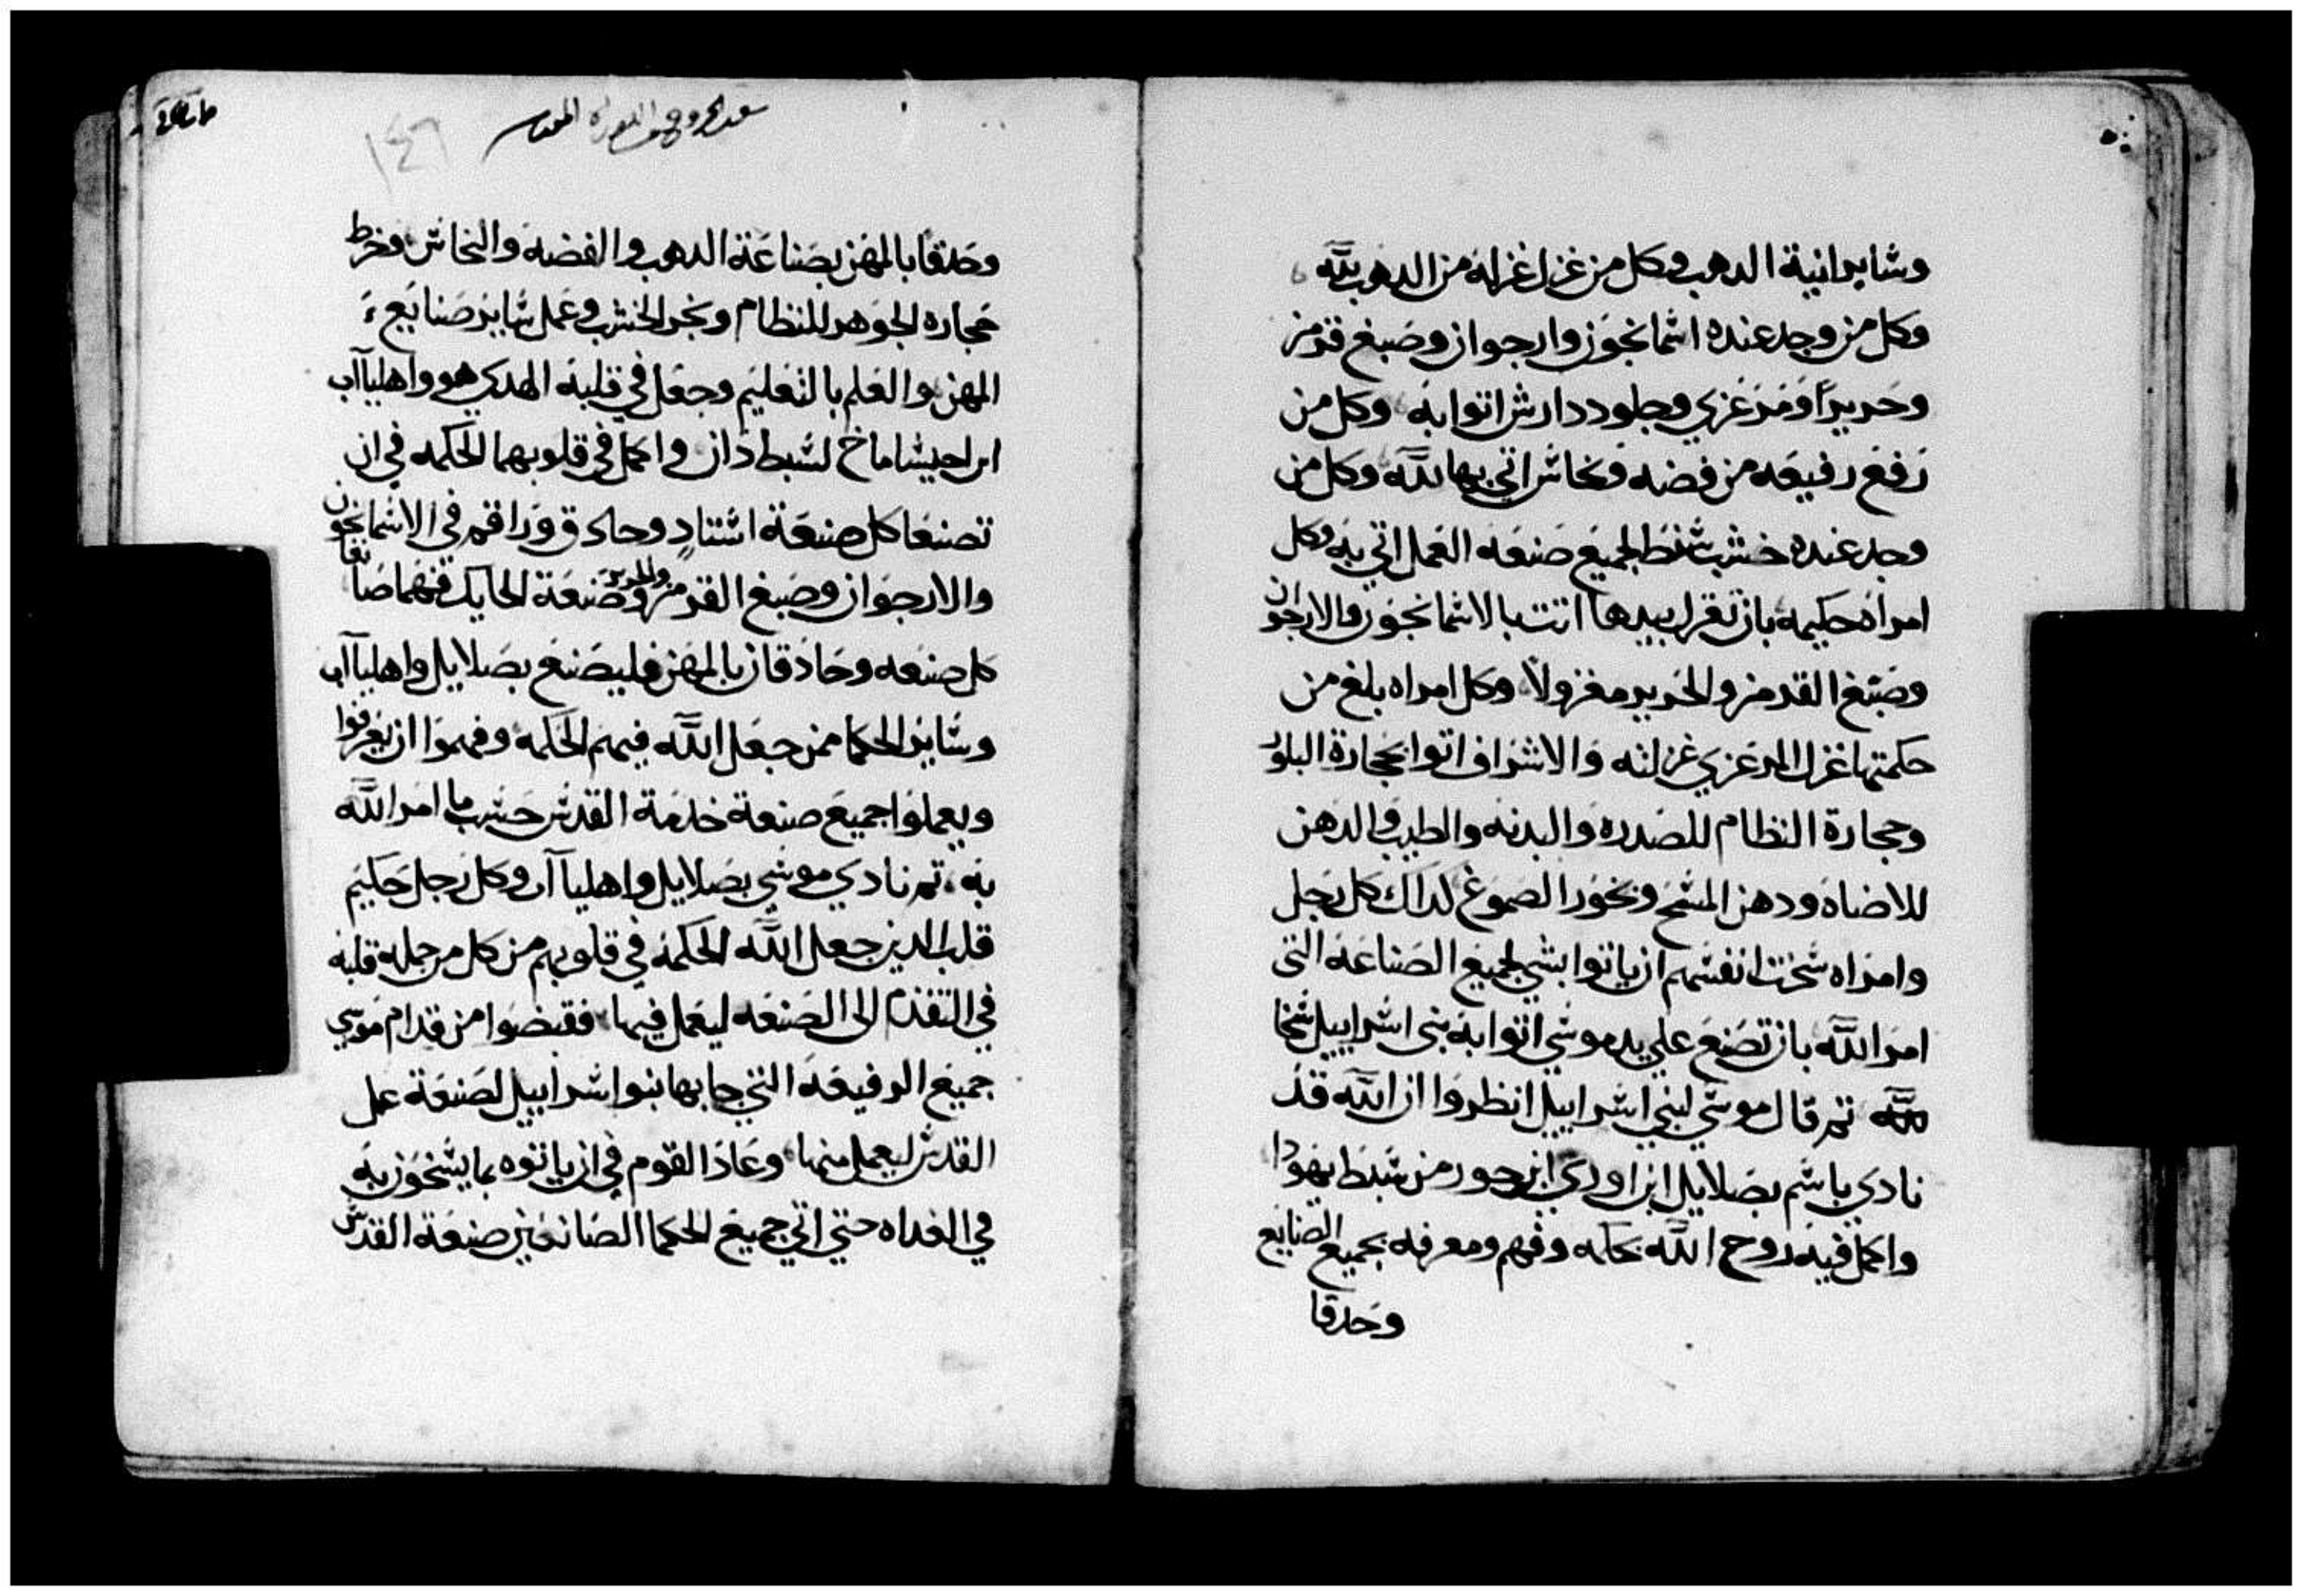 وشاير انية الدهب وكل من غزل غزله من الدهب لله
وكل من وجد عنده اشمانجون وارجوان وصبغ قرمز
وحريراً ومرعزي وجلود دارش اتوا به وكل من
رفع رفيعه من فضه ونحاش اتي بها لله وكل من
وجد عنده خشب شنط لجميع صنعه العمل اتي به وكل
امراه حكيمه بان تغزل بيدها اتت بالاشمانجون والارجوان
وصبغ القرمز والحرير مغزولاً وكل امراه بلغ من
حكمتها غزل المرعزي غزلته والاشراف اتوا بحجارة البلور
وحجارة النظام للصدره والبدنه والطيب والدهن
للاضاه ودهن المشح وبخور الصموغ كداك كل رجل
وامراه شخت انفشهم ان ياتوا بشي لجميع الصناعه التي
امر الله بان تصنع علي يد موشي اتوا به بني اشراييل شخا
لله تم قال موشي لبني اشراييل انظروا ان الله قد
نادي باشم بصلاييل ابن اوري ابن حور من شبط يهودا
واكمل فيه روح الله بحكمه وفهم ومعرفه بجميع الصنايع
وحدقا
١٤٦
وحدقا بالمهن بصناعة الدهب والفضه والنحاش وخرط
حجاره الجوهر للنظام ونجر الخشب وعمل شاير صنايع
المهن والعلم بالتعليم وجعل في قلبه الهدي هو واهلياآب
ابن احيشاماخ لشبط دان واكمل في قلوبهما الحكمه في ان
تصنعا كل صنعة اشتاد وحادق وراقم في الاشمانجون
والارجوان وصبغ القرمز والحرير وصنعة الحايك فهما صانعا
كل صنعه وحادقان بالمهن فليصنع بصلاييل واهلياآب
وشاير الحكما ممن جعل الله فيهم الحكمه وفهموا ان يعرفوا
ويعملوا جميع صنعة خدمة القدش حشب ما امر الله
به تم نادي موشي بصلاييل واهلياآب وكل رجل حكيم
قلب الدين جعل الله الحكمه في قلوبهم من كل من حمله قلبه
في التقدم الي الصنعه ليعمل فيها فقبضوا من قدام موشي
جميع الرفيعه التي جا بها بنوا اشراييل لصنعة عمل
القدش ليعمل منها وعاد القوم في ان ياتوه بما يشخون به
في الغداه حتي اتي جميع الحكما الصانعين صنعة القدش